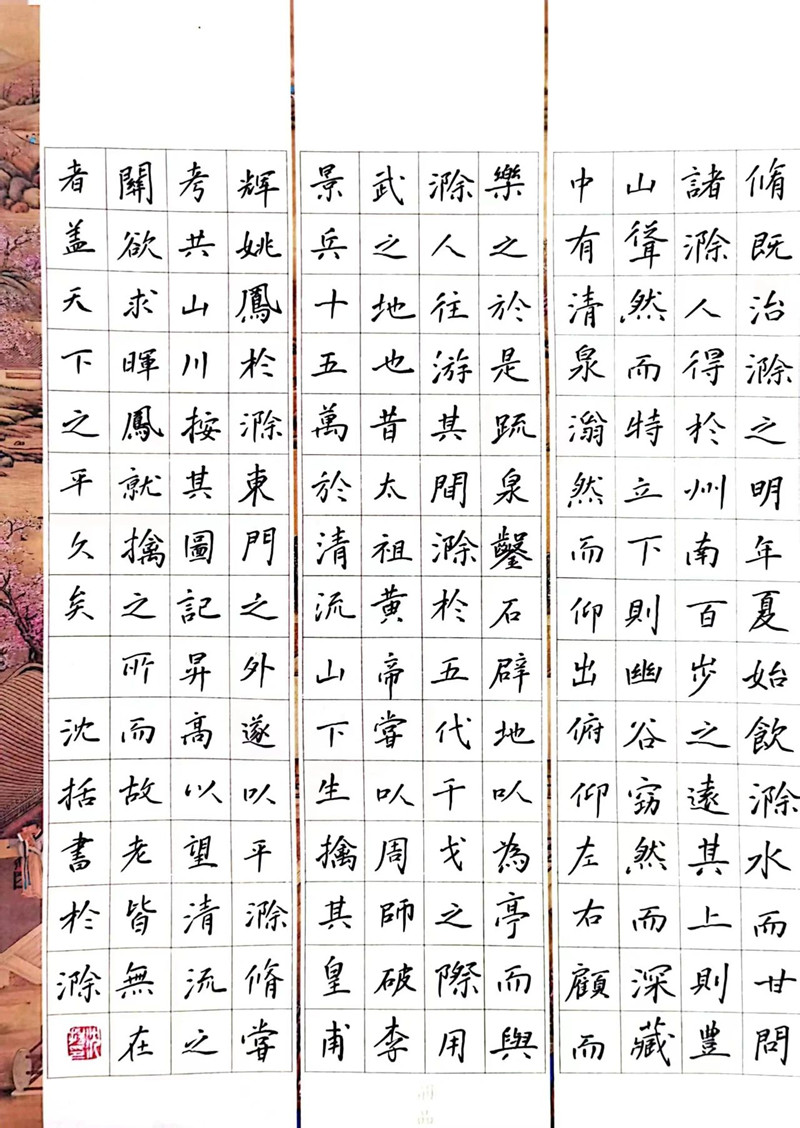 脩既治滁之明年夏始飲滁水而甘問
諸滁人得於州南百步之遠其上則豐
山聳然而特立下則幽谷窈然而深藏
中有清泉滃然而仰出俯仰左右顧而
樂之於是疏泉鑿石辟地以為亭而與
滁人往游其間滁於五代干戈之際用
武之地也昔太祖黄帝嘗以周師破李
景兵十五萬於清流山下生擒其皇甫
辉姚鳳於滁東門之外遂以平滁脩嘗
考共山川按其圖記昇高以望清流之
關欲求暉鳳就擒之所而故老皆無在
者盖天下之平久矣 沈括書於滁